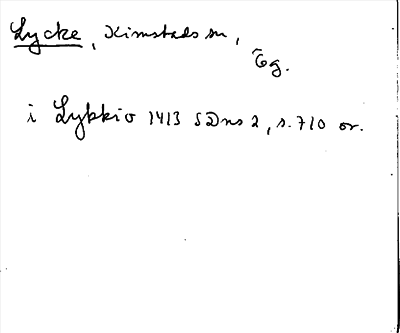 Lycke, Kimstads sn,
Ög.
i Lykkio 1413 SDns 2, s. 710 or.